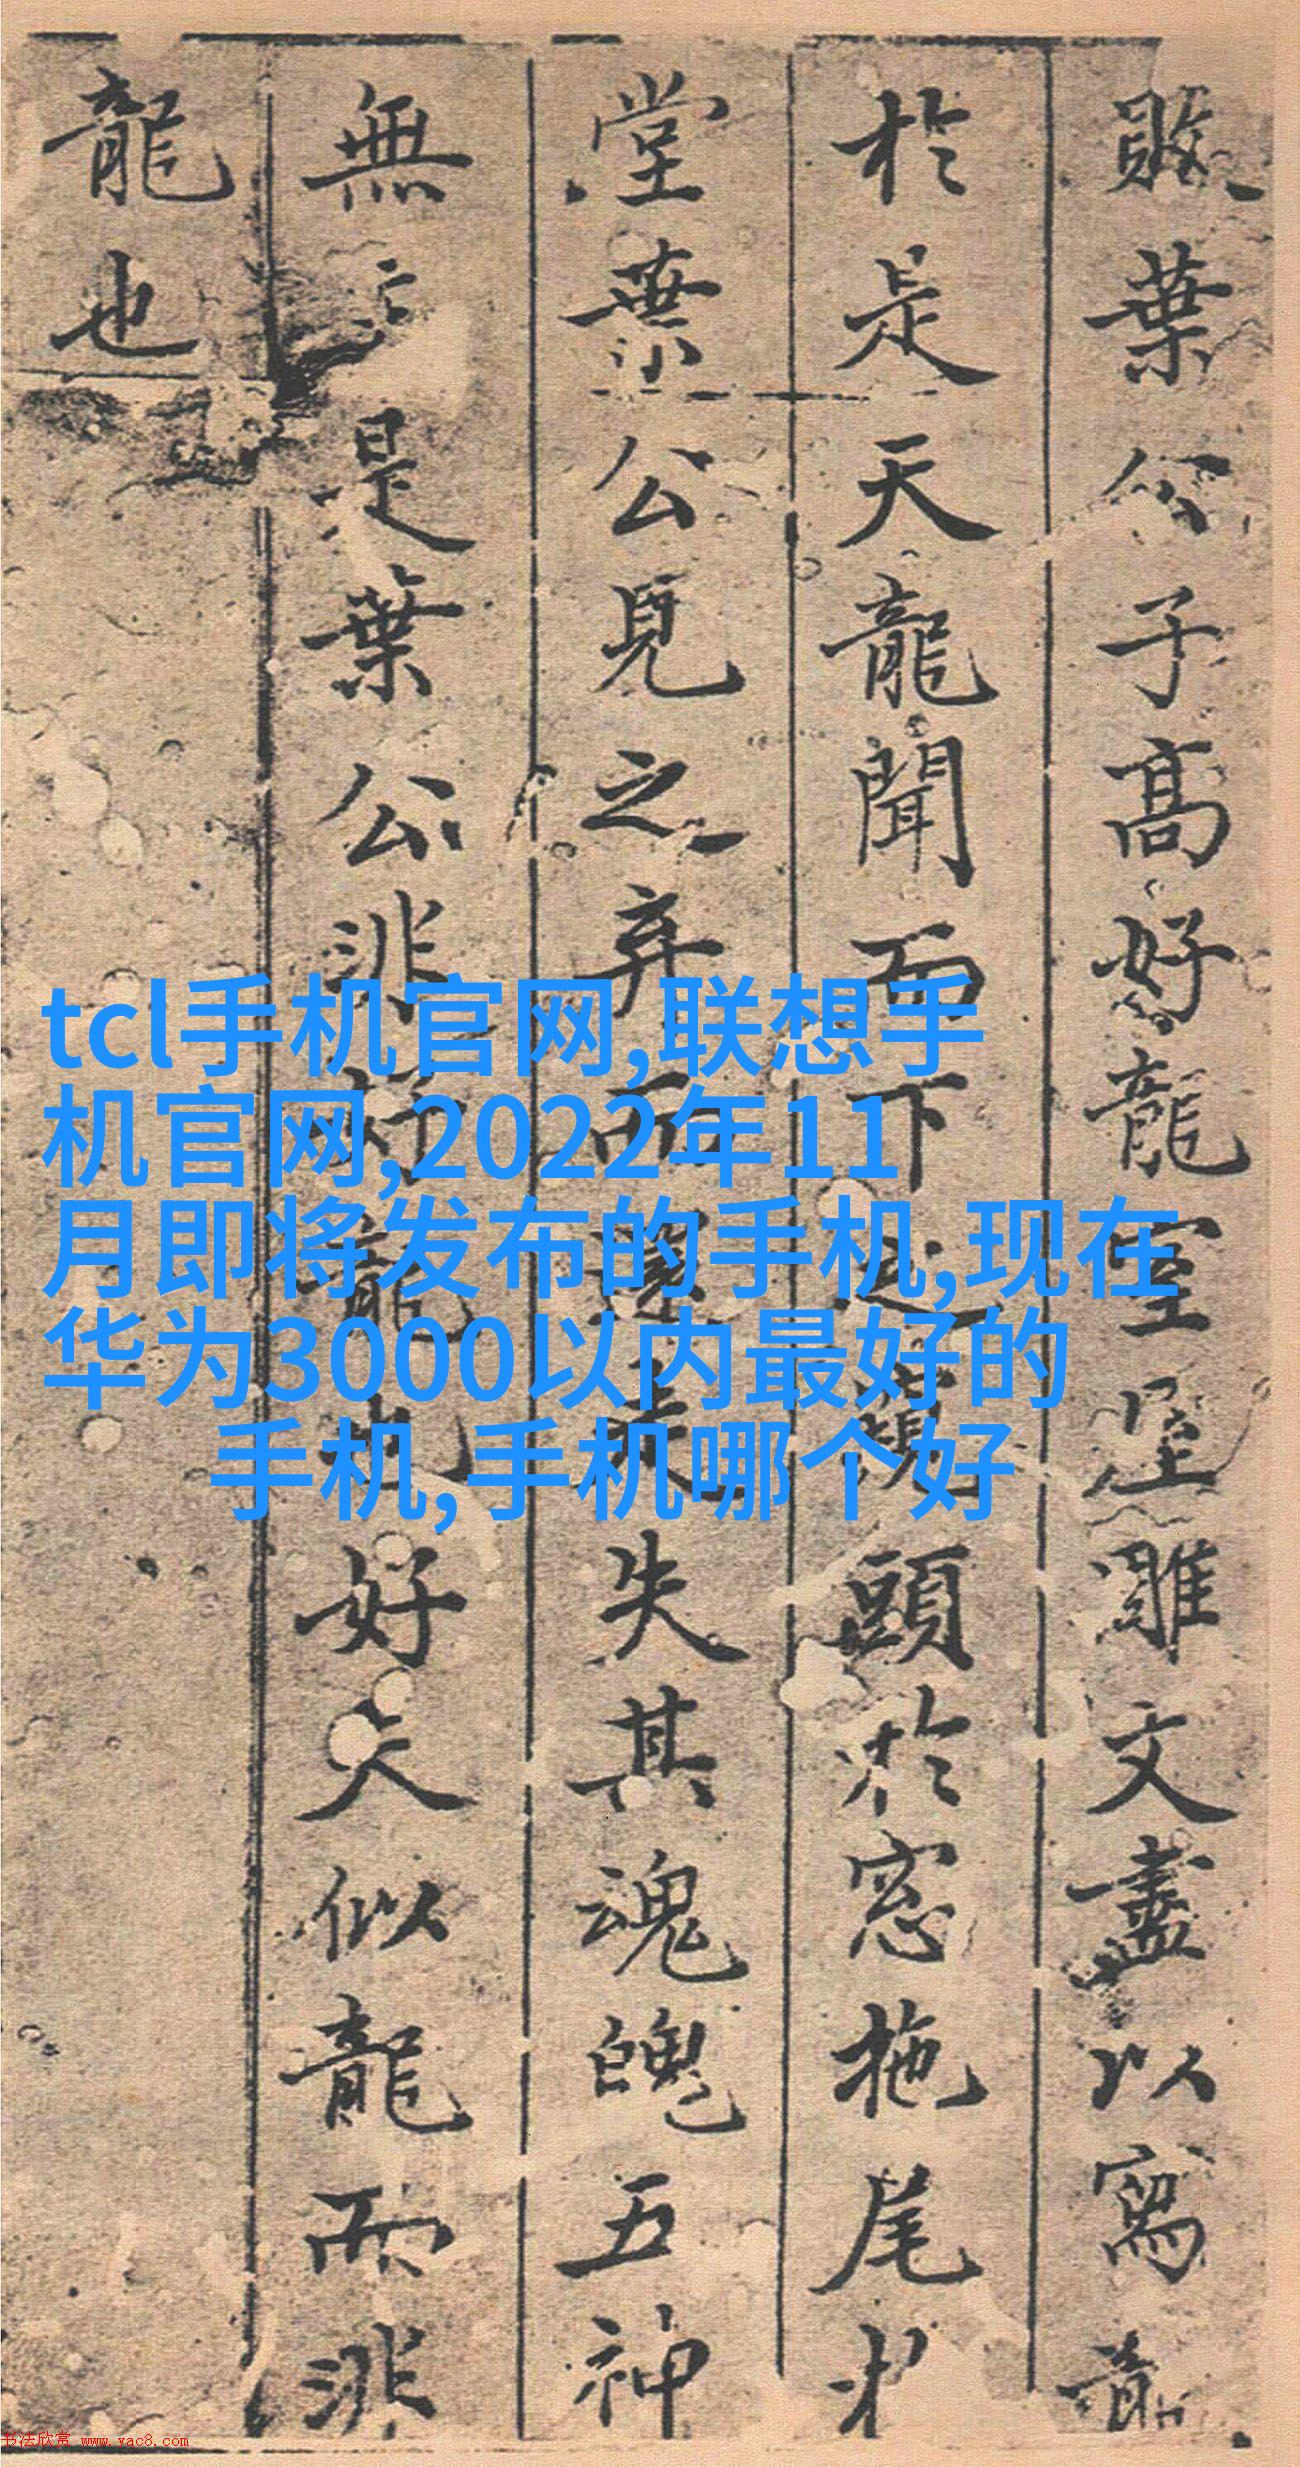 敗葉公子高好龍室屋雕文盡以寫龍
於是天龍聞而下之窺頭於窓拖尾於
堂葉公見之弃而還走失其魂魄五神
無主是葉公非好龍也好夫似龍而非
龍也
tcl手机官网,联想手
机官网,2022年11
月即将发布的手机,现在
华为3000以内最好的
手机,手机哪个好
书法欣赏 www.yac8.com